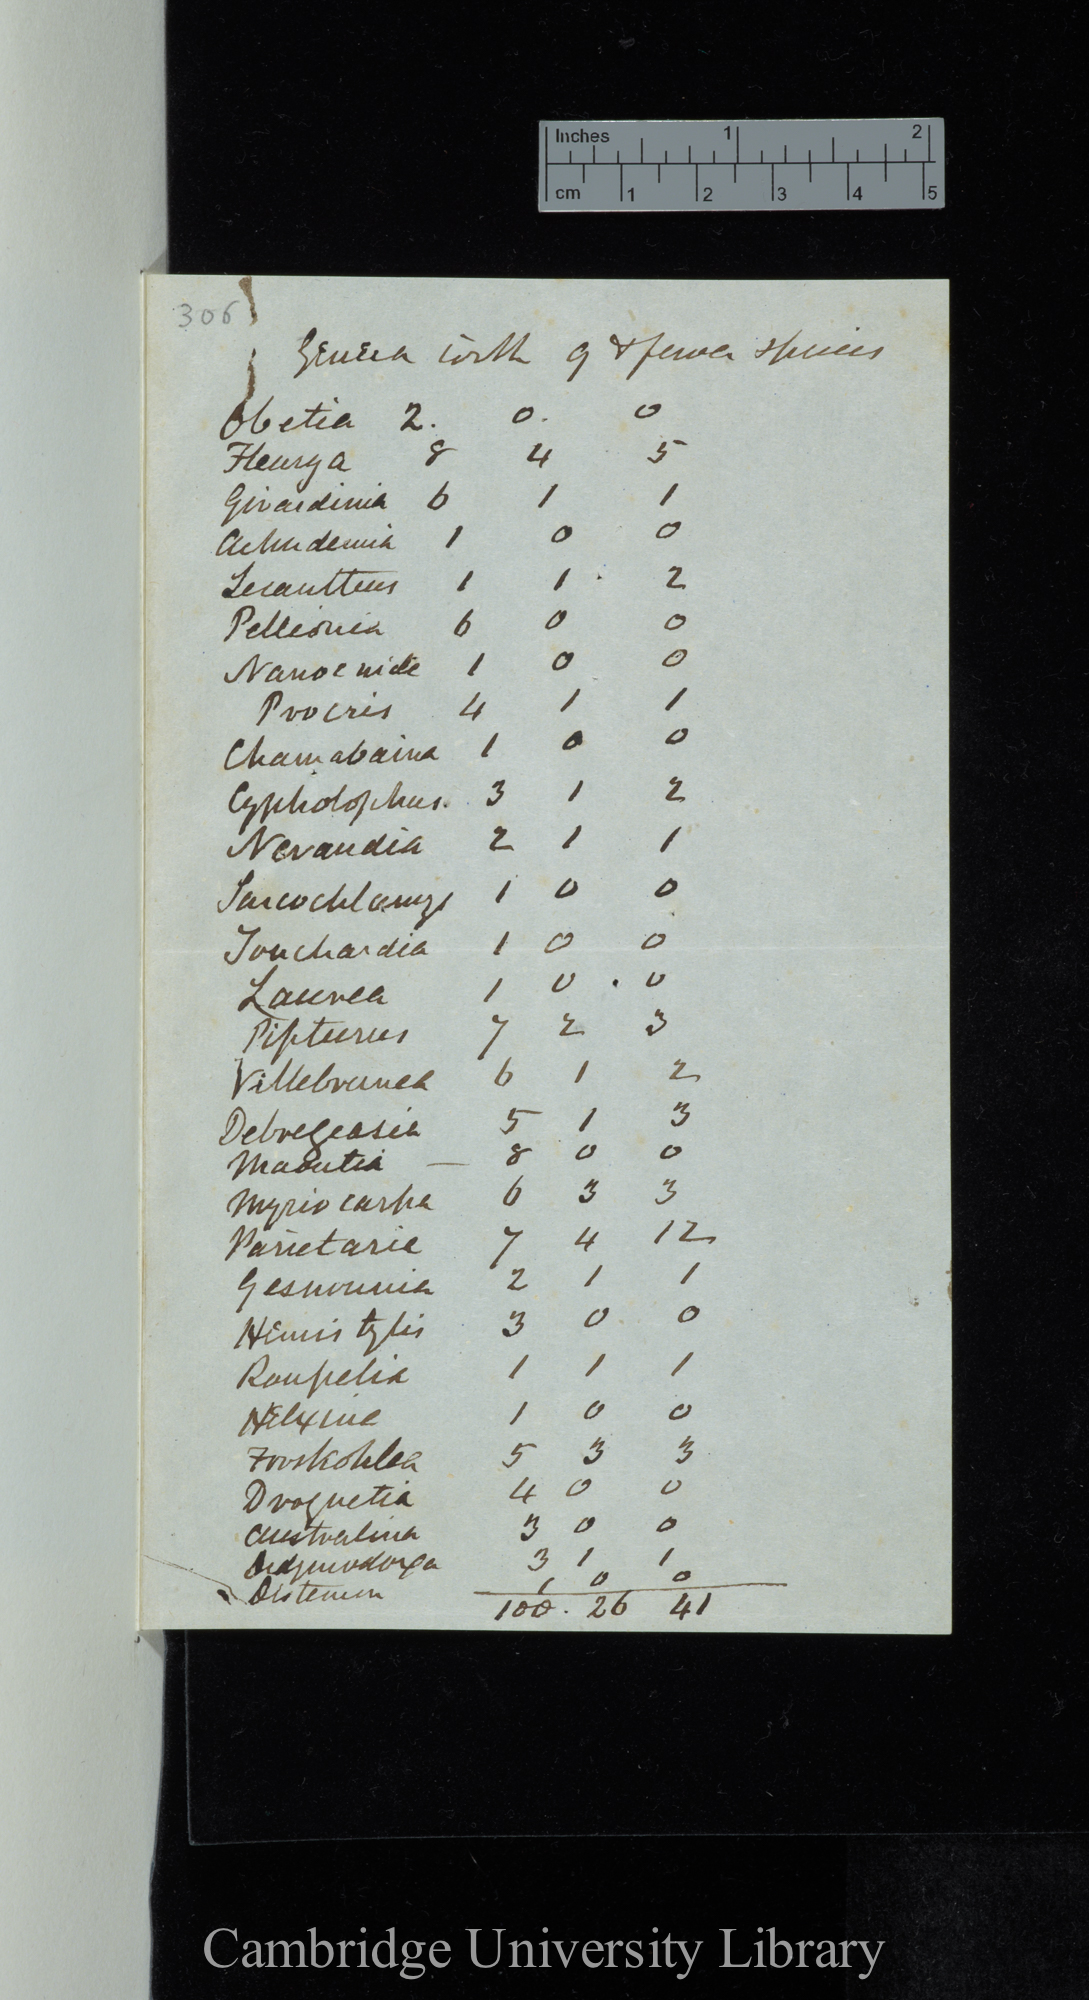 Inches 1 2
cm 1 2 3 4 5
306
Genera with 9 & fewer species
Obetia 2. 0. 0
Fleurya 8 4 5
Girardinia 6 1 1
Achudemia 1 0 0
Lecanthus 1 1 2
Pellionia 6 0 0
Nanocnide 1 0 0
Procris 4 1 1
Chamabaina 1 0 0
Cypholophus. 3 1 2
Neraudia 2 1 1
Sarcochlamys 1 0 0
Touchardia 1 0 0
Laurea 1 0 0
Pipturus 7 2 3
Villebrunea 6 1 2
Debregeasia 5 1 3
Maoutia — 8 0 0
Myriocarpa 6 3 3
Parietaria 7 4 12
Gesnouinia 2 1 1
Hemistylis 3 0 0
Roupelia 1 1 1
Helxine 1 0 0
Forskohlea 5 3 3
Droguetia 4 0 0
Australina 3 0 0
3 1 1
Distemon 1 0 0
100. 26 41
Cambridge University Library